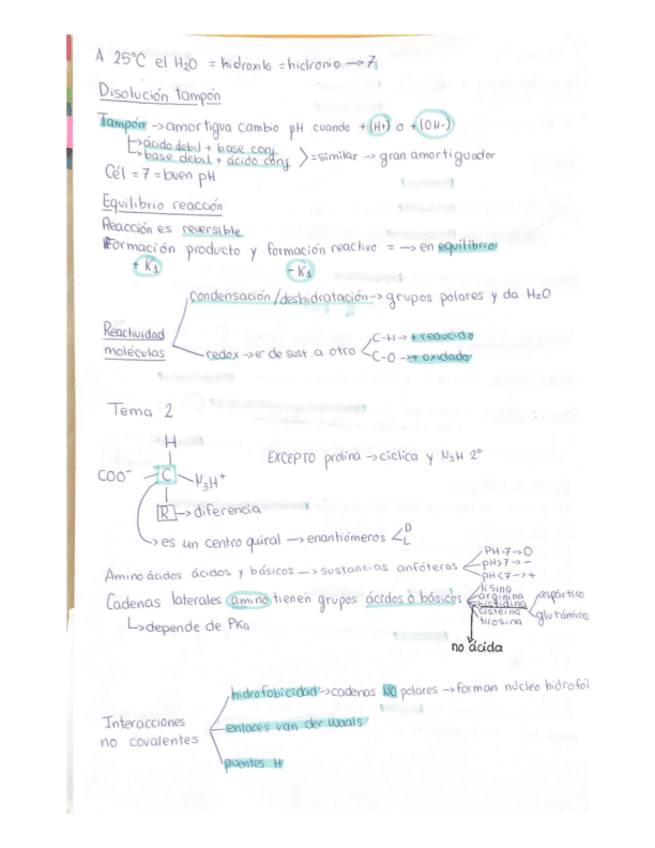 A 25°C el H2O = hidroxilo = hidronio → 7
Disolución tampón
Tampón → amortigua cambio pH cuando + (H+) o + (OH-)
ácido debil + base conj
base debil + ácido conj
= similar → gran amortiguador
Cél = 7 = buen pH
Equilibrio reacción
Reacción es reversible
Formación producto y formación reactivo = → en equilibrio
+ K1
- K1
Reactividad
moléculas
condensación/deshidratación → grupos polares y da H2O
redox → e- de sust. a otro
C-H → + reducido
C-O → + oxidado
Tema 2
H
COO- C N3H+
R → diferencia
EXCEPTO prolina → cíclica y N3H 2º
es un centro quiral → enantiómeros
D
L
Amino ácidos ácidos y básicos → sustancias anfóteras
PH=7 → 0
pH>7 → -
pH<7 → +
Cadenas laterales amino tienen grupos ácidos o básicos
lisina
arginina
histidina
cisteina
tirosina
aspártico
glutámico
no ácida
↳ depende de PKa
Interacciones
no covalentes
hidrofobicidad → cadenas NO polares → forman núcleo hidrofol
enlaces van der Waals
puentes H